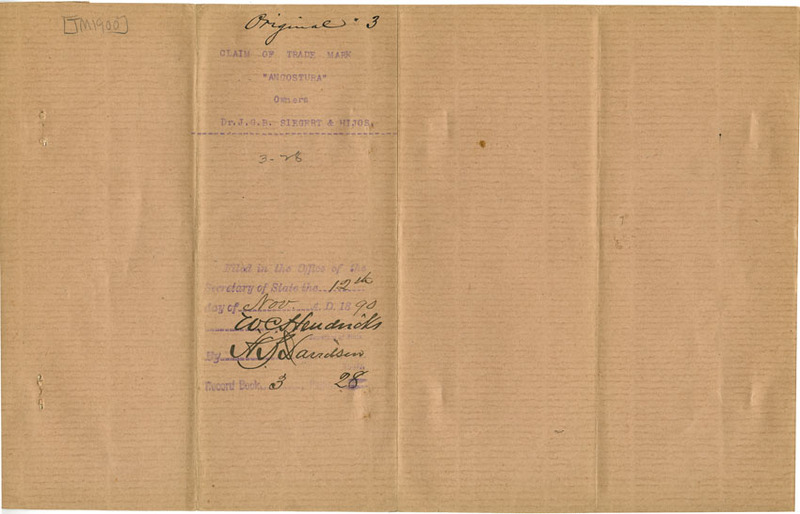 [TM1900]
Original 3
CLAIM OF TRADE MARK
"ANGOSTURA"
Owners
Dr.J.G.B. SIEGERT & HIJOS.
3-28
Filed in the Office of the
Secretary of State the 12th
day of Nov A.D. 1890
W.C. Hendricks
By Davidson
Record Book 3 28